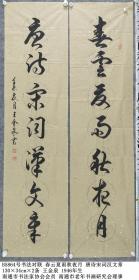 春云夏雨秋夜月
唐诗宋词汉文章
BS864号书法对联 春云夏雨秋夜月 唐诗宋词汉文章
130×34cm×2条 王金泉 1946年生
南通市书法家协会会员 南通市老年书画研究会理事